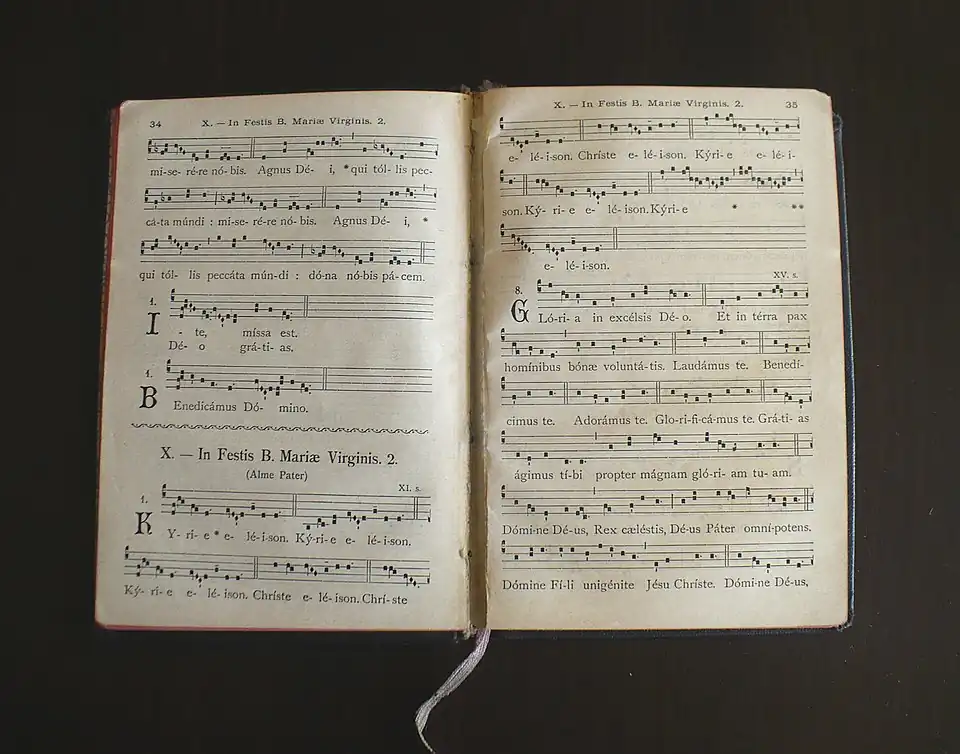 34 X. — In Festis B. Mariæ Virginis. 2.
mi-se- ré-re nó- bis. Agnus Dé- i, * qui tól- lis pec-
cá-ta múndi : mi-se- ré-re nó- bis. Agnus Dé- i, *
qui tól- lis peccáta mún-di : dó-na nó-bis pá-cem.
1.
I - te, míssa est.
Dé- o grá-ti- as.
1.
B Enedicámus Dó- mino.
X. — In Festis B. Mariæ Virginis. 2.
(Alme Pater)
XI. s.
1.
K Y- ri- e * e- lé-i-son. Ký-ri-e e- lé-i-son.
Ký- ri- e e- lé- ison. Christe e- lé-ison. Chrí-ste
X. — In Festis B. Mariæ Virginis. 2. 35
e- lé-i-son. Christe e- lé-i-son. Kýri-e e- lé-i-
son. Ký- ri- e e- lé-ison. Kýri-e * **
e- lé-i-son.
XV. s.
8.
G Ló-ri- a in excélsis Dé-o. Et in térra pax
homínibus bónæ voluntá-tis. Laudámus te. Benedí-
cimus te. Adorámus te. Glo-ri-fi-cá-mus te. Grá-ti- as
ágimus tí-bi propter mágnam gló-ri- am tu- am.
Dómi-ne Dé-us, Rex cæléstis, Dé-us Páter omní-potens.
Dómine Fí-li unigénite Jésu Christe. Dómi-ne Dé-us,